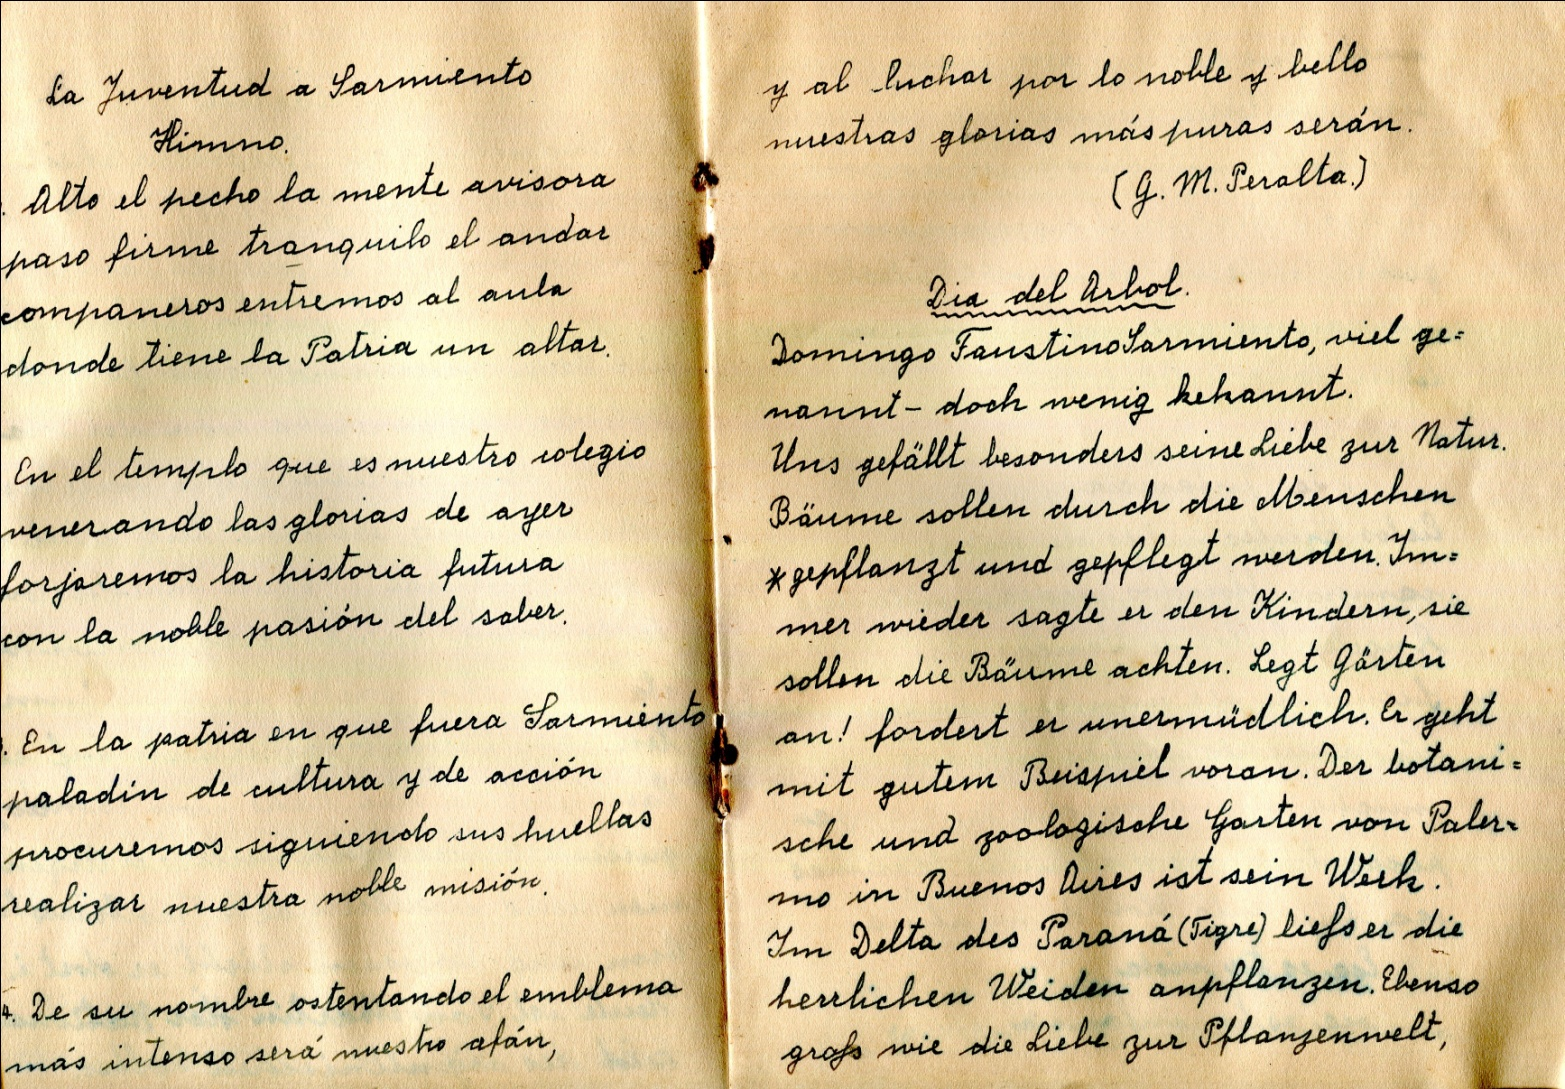 La Juventud a Sarmiento
Himno.
. Alto el pecho la mente avisora
paso firme tranquilo el andar
companeros entremos al aula
donde tiene la Patria un altar.
En el templo que es nuestro colegio
venerando las glorias de ayer
forjaremos la historia futura
con la noble pasión del saber.
. En la patria en que fuera Sarmiento
paladin de cultura y de acción
procuremos siguiendo sus huellas
realizar nuestra noble misión.
4. De su nombre ostentando el emblema
más intenso será nuestro afán,
y al luchar por lo noble y bello
nuestras glorias más puras serán.
(G. M. Peralta.)
Dia del Arbol.
Domingo Faustino Sarmiento, viel ge=
nannt – doch wenig bekannt.
Uns gefällt besonders seine Liebe zur Natur.
Bäume sollen durch die Menschen
*gepflanzt und gepflegt werden. Im=
mer wieder sagte er den Kindern, sie
sollen die Bäume achten. Legt Gärten
an! fordert er unermüdlich. Er geht
mit gutem Beispiel voran. Der botani=
sche und zoologische Garten von Paler=
mo in Buenos Aires ist sein Werk.
Im Delta des Paraná (Tigre) liefs er die
herrlichen Weiden anpflanzen. Ebenso
grofs wie die Liebe zur Pflanzenwelt,